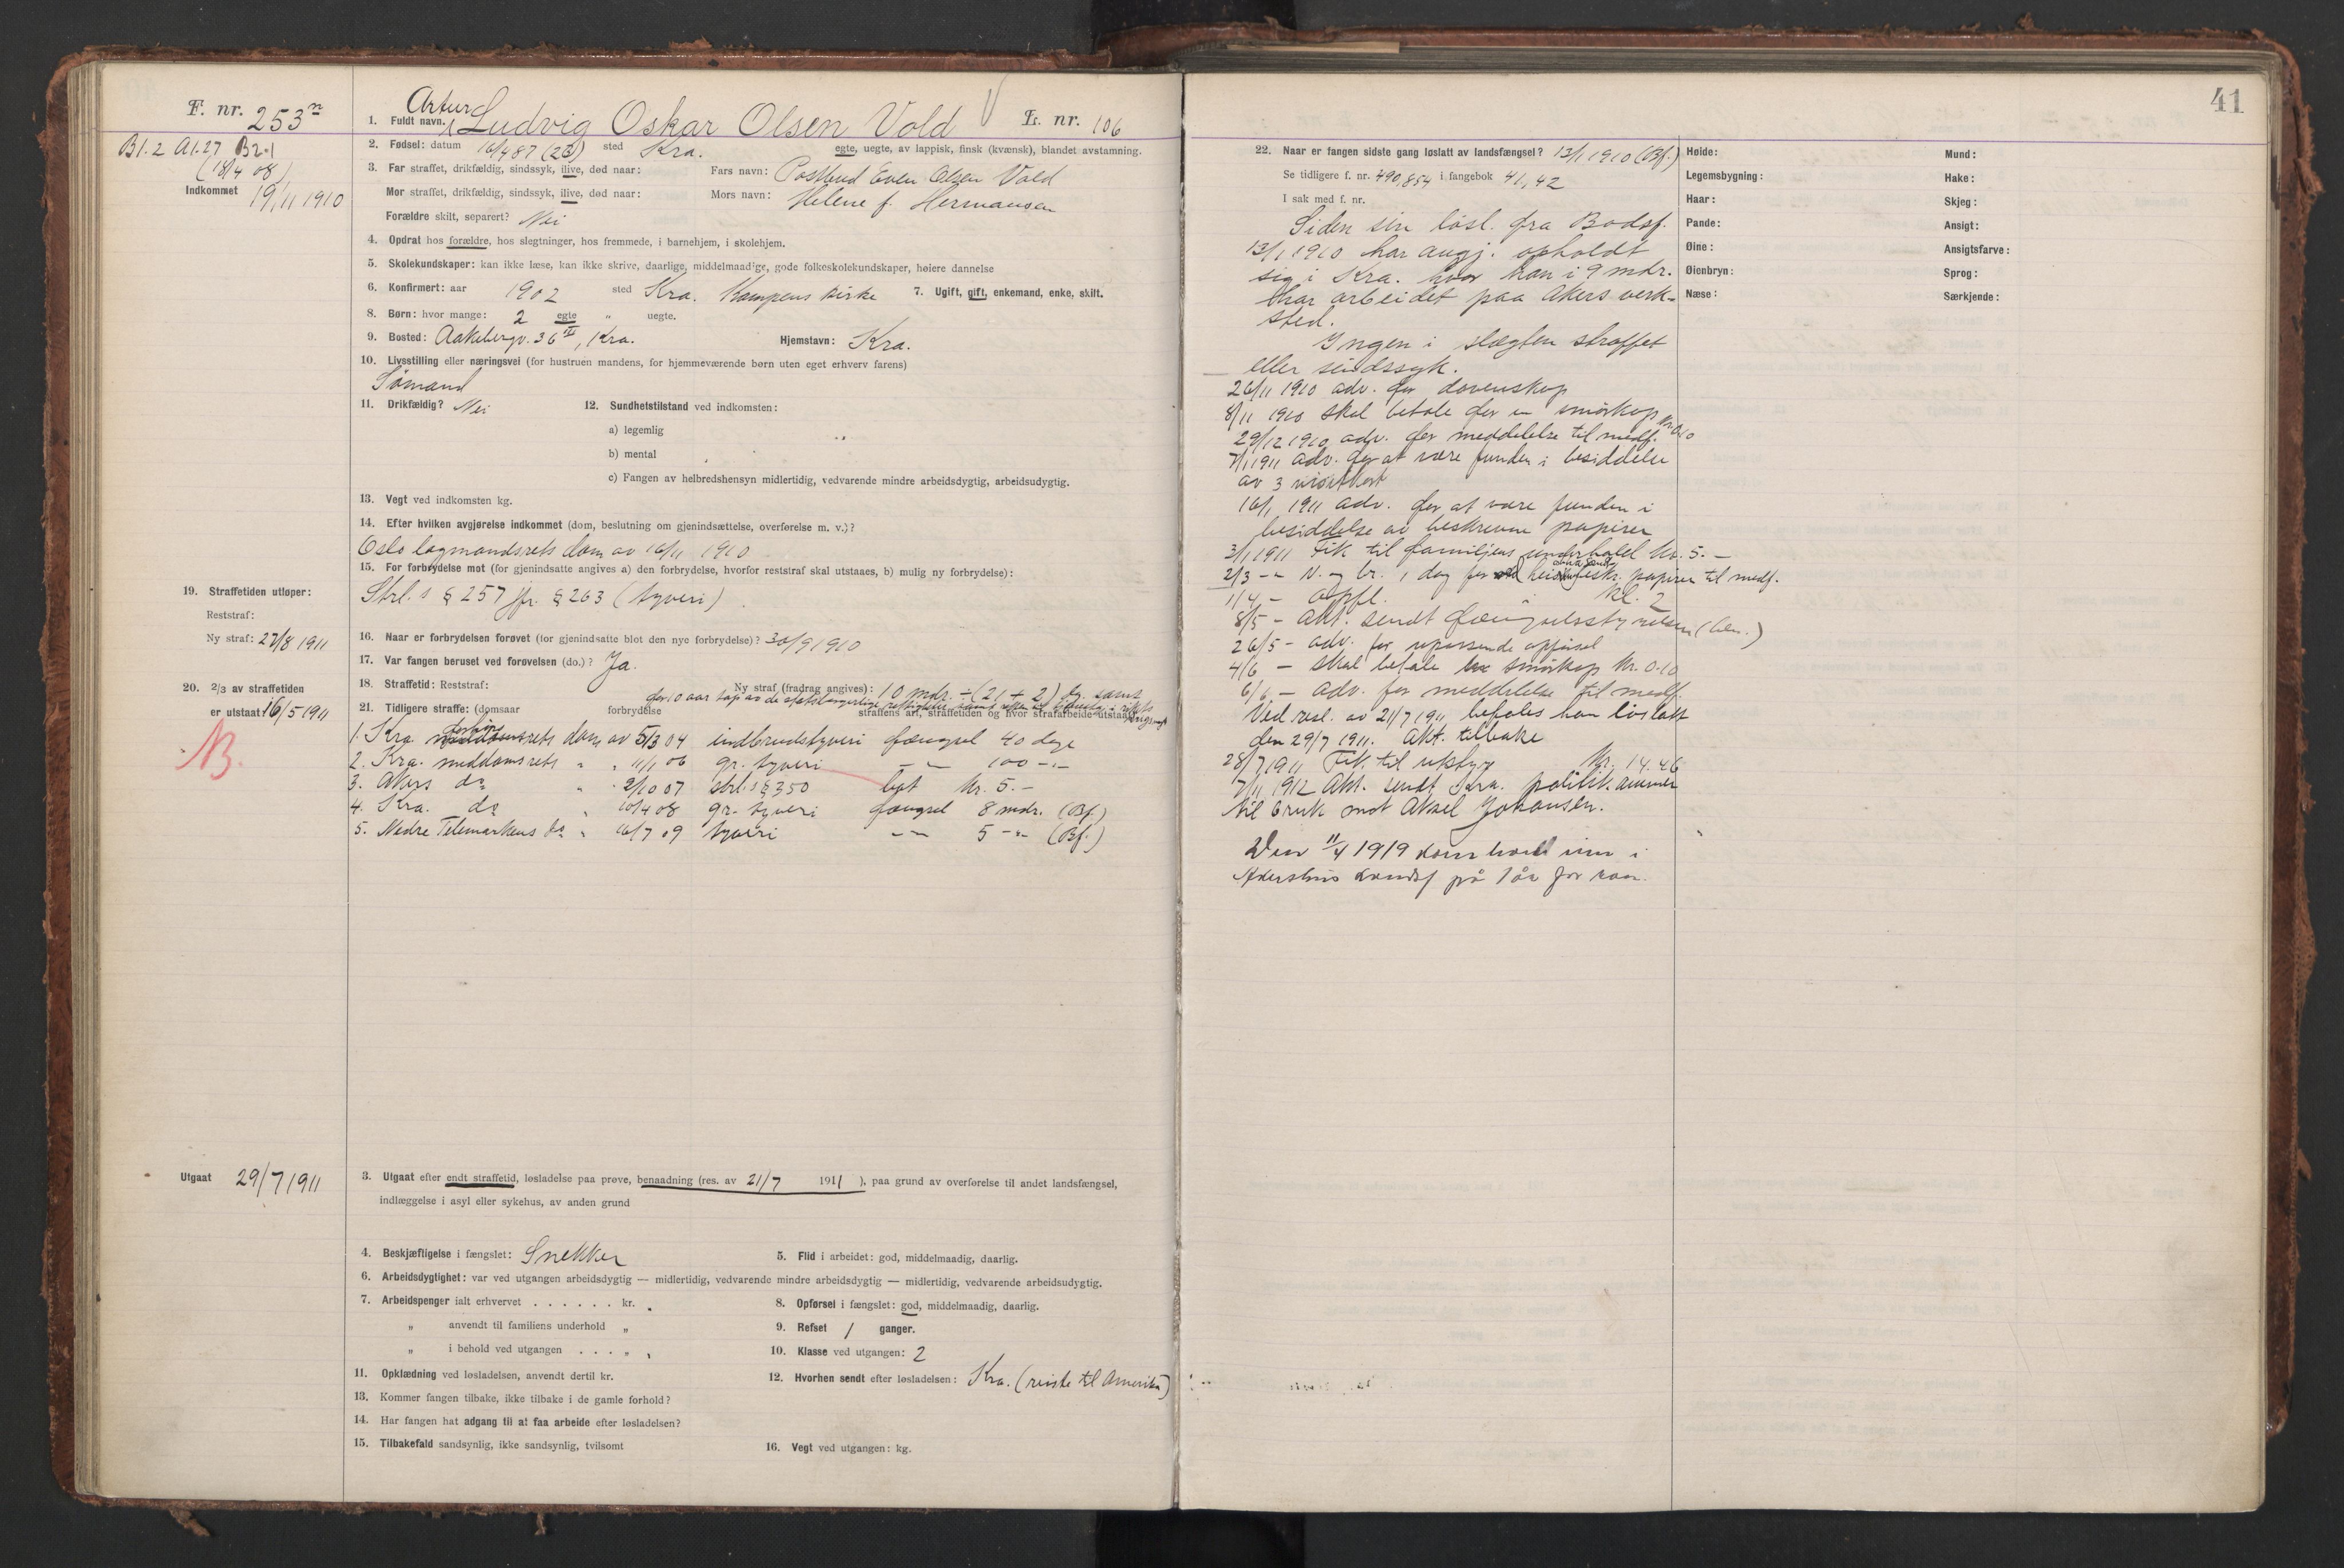 F. nr. 253
Bl. 2 Al. 27 B2.1
(18/4 08)
Indkommet 19/11 1910
Artur
1. Fuldt navn. Ludvig Oskar Olsen Vold L. nr. 106
2. Fødsel: datum 16/4 87 (23) sted Kra. egte, uegte, av lappisk, finsk (kvænsk), blandet avstamning.
3. Far straffet, drikfældig, sindssyk, ilive, død naar: Fars navn: Postbud Even Olsen Vold
Mor straffet, drikfældig, sindssyk, ilive, død naar: Mors navn: Helene f. Hermansen
Forældre skilt, separert? Nei
4. Opdrat hos forældre, hos slegtninger, hos fremmede, i barnehjem, i skolehjem.
5. Skolekundskaper: kan ikke læse, kan ikke skrive, daarlige, middelmaadige, gode folkeskolekundskaper, høiere dannelse
6. Konfirmert: aar 1902 sted Kra. Kampens kirke 7. Ugift, gift, enkemand, enke, skilt.
8. Børn: hvor mange: 2 egte " uegte.
9. Bosted: Aakebergv. 36 II, Kra. Hjemstavn: Kra.
10. Livsstilling eller næringsvei (for hustruen mandens, for hjemmeværende børn uten eget erhverv farens)
Sømand
11. Drikfældig? Nei 12. Sundhetstilstand ved indkomsten:
a) legemlig
b) mental
c) Fangen av helbredshensyn midlertidig, vedvarende mindre arbeidsdygtig, arbeidsudygtig.
13. Vegt ved indkomsten kg.
14. Efter hvilken avgjørelse indkommet (dom, beslutning om gjenindsættelse, overførelse m. v.)?
Oslo lagmandsrets dom av 16/11 1910
15. For forbrydelse mot (for gjenindsatte angives a) den forbrydelse, hvorfor reststraf skal utstaaes, b) mulig ny forbrydelse):
Strl. s § 257 jfr. § 263 (tyveri)
19. Straffetiden utløper:
Reststraf:
Ny straf: 27/8 1911
16. Naar er forbrydelsen forøvet (for gjenindsatte blot den nye forbrydelse)? 30/9 1910
17. Var fangen beruset ved forøvelsen (do.)? Ja.
20. 2/3 av straffetiden
er utstaat 16/5 1911
NB.
18. Straffetid: Reststraf: Ny straf (fradrag angives): 10 mdr. ÷ (21 + 2) dg. samt
for 10 aar tap av de statsborgerlige rettigheter
21. Tidligere straffe: (domsaar forbrydelse straffens art, straffetiden og hvor strafarbeide utstaat)
1. Kra. forhørsrets dom av 5/3 04 indbrudstyveri fængsel 40 dage
2. Kra. meddomsrets " " 11/1 06 gr. tyveri - " - 100 - " -
3. Akers do " 2/10 07 strl. s § 350 bot kr. 5.-
4. Kra. do " 10/4 08 gr. tyveri fængsel 8 mdr. (Bf.)
5. Nedre Telemarkens do " 16/7 09 tyveri - " - 5 - " - (Bf.)
Utgaat 29/7 1911
3. Utgaat efter endt straffetid, løsladelse paa prøve, benaadning (res. av 21/7 1911), paa grund av overførelse til andet landsfængsel,
indlæggelse i asyl eller sykehus, av anden grund
4. Beskjæftigelse i fængslet: Snekker 5. Flid i arbeidet: god, middelmaadig, daarlig.
6. Arbeidsdygtighet: var ved utgangen arbeidsdygtig — midlertidig, vedvarende mindre arbeidsdygtig — midlertidig, vedvarende arbeidsudygtig.
7. Arbeidspenger ialt erhvervet . . . . . . kr. 8. Opførsel i fængslet: god, middelmaadig, daarlig.
" anvendt til familiens underhold " 9. Refset 1 ganger.
" i behold ved utgangen . . . . " 10. Klasse ved utgangen: 2
11. Opklædning ved løsladelsen, anvendt dertil kr. 12. Hvorhen sendt efter løsladelsen: Kra. (reiste til Amerika)
13. Kommer fangen tilbake, ikke tilbake i de gamle forhold?
14. Har fangen hat adgang til at faa arbeide efter løsladelsen?
15. Tilbakefald sandsynlig, ikke sandsynlig, tvilsomt 16. Vegt ved utgangen: kg.
41
22. Naar er fangen sidste gang løslatt av landsfængsel? 13/1 1910 (Bf.)
Se tidligere f. nr. 490, 854 i fangebok 41, 42
I sak med f. nr.
Siden sin løsl. fra Bodsf.
13/1 1910 har angj. opholdt
sig i Kra. hvor han i 9 mdr.
har arbeidet paa Akers verk-
sted.
Ingen i slægten straffet
eller sindssyk.
26/11 1910 adv. for dovenskap
8/11 1910 skal betale for en smørkop kr. 0.10
29/12 1910 adv. for meddelelse til medf.
7/1 1911 adv. for at være funden i besiddelse
av 3
16/1 1911 adv. for at være funden i
besiddelse av beskrevne papirer
3/1 1911 Fik til familjens underhold kr. 5.-
2/3 - " - V. og br. 1 dag for beskr. papirer til medf.
1/4 - opfl. kl. 2
8/5 - Akt. sendt fængselsstyrelsen (ben.)
26/5 - adv. for upassende opførsel
4/6 - skal betale smørkop kr. 0.10
6/6 - adv. for meddelelse til medf.
Ved resl. av 21/7 1911 befales han løslatt
den 29/7 1911. Akt. tilbake
28/7 1911 Fik til utstyr kr. 14.46
7/11 1912 Akt. sendt Kra. politikammer
til bruk mot Aksel Johansen.
Den 11/4 1919 kom Vold inn i
Akershus landsf på 1 år for ran.
Høide: Mund:
Legemsbygning: Hake:
Haar: Skjeg:
Pande: Ansigt:
Øine: Ansigtsfarve:
Øienbryn: Sprog:
Næse: Særkjende: